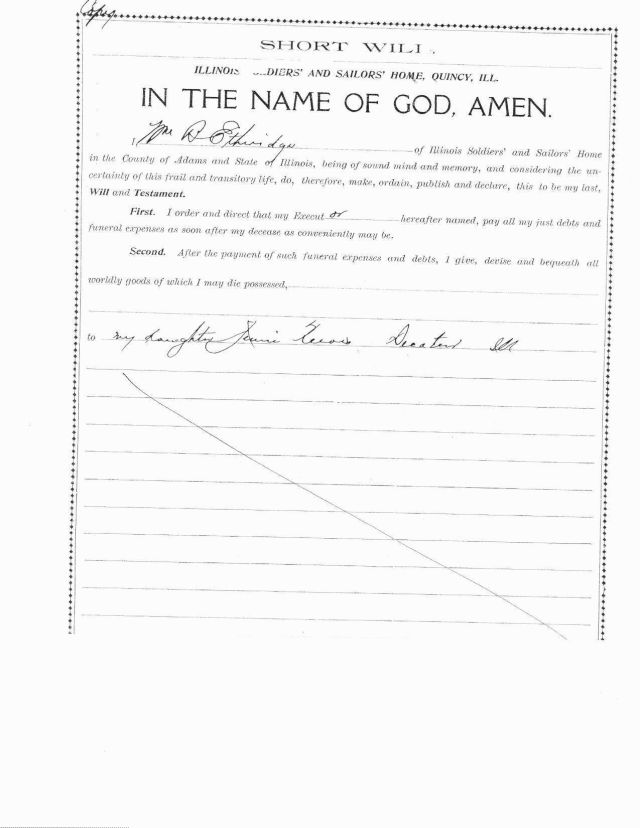 Copy
SHORT WILL.
ILLINOIS SOLDIERS' AND SAILORS' HOME, QUINCY, ILL.
IN THE NAME OF GOD, AMEN.
I Wm B Etheridge of Illinois Soldiers' and Sailors' Home
in the County of Adams and State of Illinois, being of sound mind and memory, and considering the un-
certainty of this frail and transitory life, do, therefore, make, ordain, publish and declare, this to be my last,
Will and Testament.
First. I order and direct that my Execut or hereafter named, pay all my just debts and
funeral expenses as soon after my decease as conveniently may be.
Second. After the payment of such funeral expenses and debts, I give, devise and bequeath all
worldly goods of which I may die possessed,
to my daughter Decatur Ill